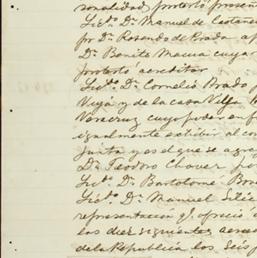 sonalidad protestó presen
Licdo. Dn. Manuel de Castañe
pr. Dn. Rosendo de Prada
Dn. Benito Macua cuya
protestó acreditar
Licdo. Dn. Cornelio Prado p
Vega y de la casa Villa
Veracruz cuyo poder en f
igualmente exhibir al con
junta y es el que se agre
Dn. Teodoro Chavez
Licdo. Dn. Bartolomé
Licdo. Dn. Manuel
representacion qe. ofreció
los diez siguientes acree
de la República los Seis p